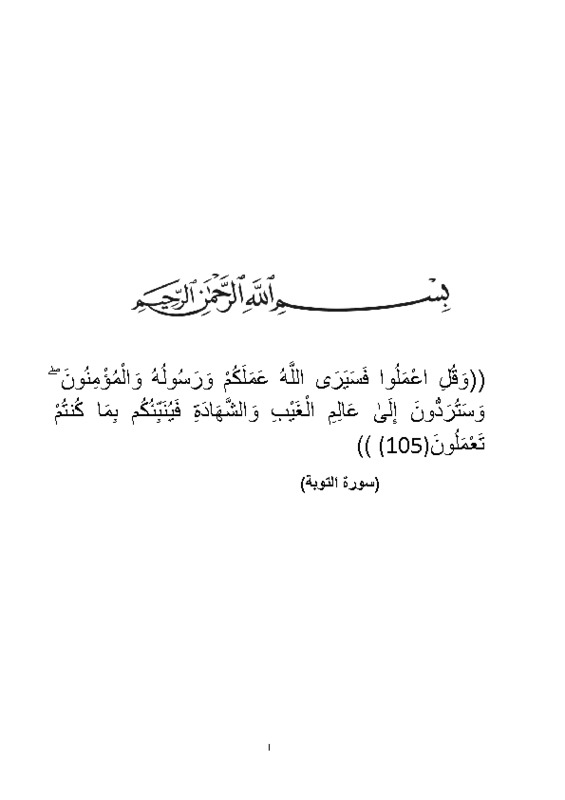 بِسْمِ اللَّهِ الرَّحْمَٰنِ الرَّحِيمِ
((وَقُلِ اعْمَلُوا فَسَيَرَى اللَّهُ عَمَلَكُمْ وَرَسُولُهُ وَالْمُؤْمِنُونَ ۖ
وَسَتُرَدُّونَ إِلَىٰ عَالِمِ الْغَيْبِ وَالشَّهَادَةِ فَيُنَبِّئُكُم بِمَا كُنتُمْ
تَعْمَلُونَ(105) ))
(سورة التوبة)
I